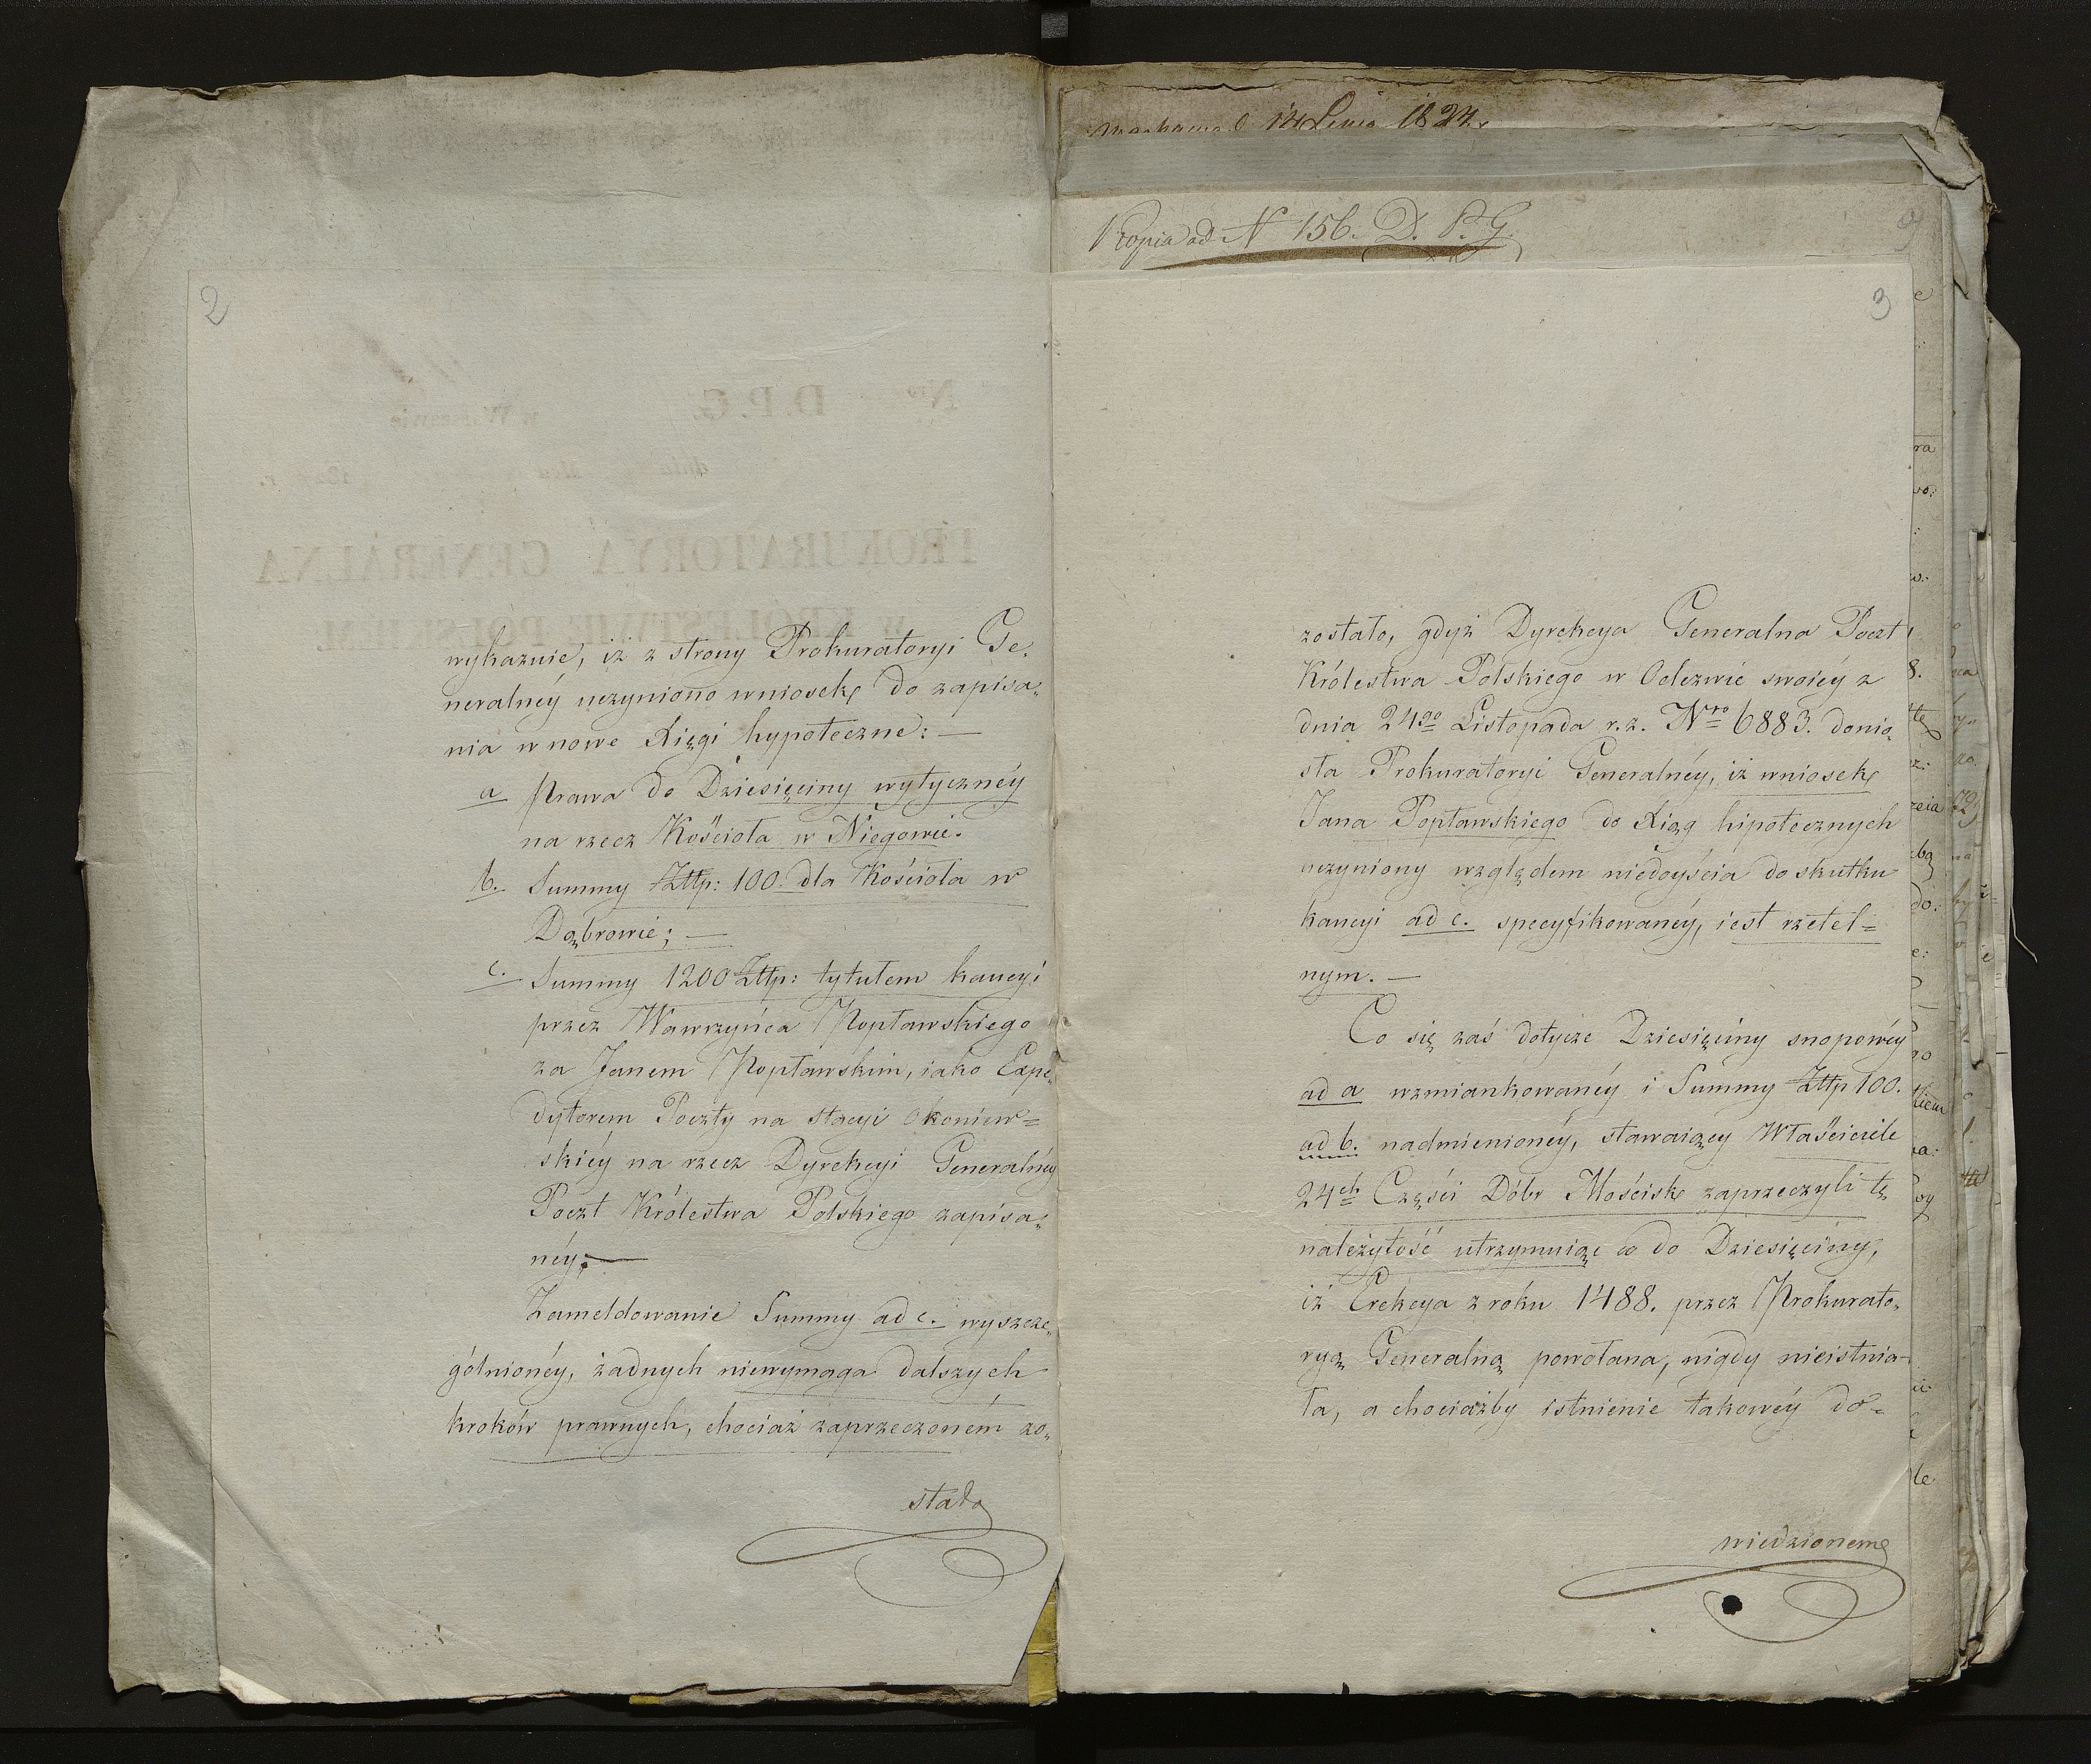 2
wykazuie, iż z strony Prokuratoryi Ge-
neralnéy uczyniono wniosek do zapisa-
nia w nowe Xięgi hypoteczne: —
a Prawa do Dziesięciny wytycznéy
na rzecz Kościoła w Niegowie.
b. Summy Złtp: 100. dla Kościoła w
Dąbrowie; —
c. Summy 1200 Złtp: tytułem kaucyi
przez Wawrzyńca Popławskiego
za Janem Popławskim, iako Expe-
dytorem Poczty na stacyi Okoniew=
skiéy na rzecz Dyrekcyi Generalnéy
Poczt Królestwa Polskiego zapisa-
néy; —
Zameldowanie Summy ad c. wyszcze-
gólnionéy, żadnych niewymaga dalszych
kroków prawnych, chociaż zaprzeczoném zo-
stało
14 1824.
Kopia ad N 156. D. P. G.
3
zostało, gdyż Dyrekcya Generalna Poczt
Królestwa Polskiego w Odezwie swoiéy z
dnia 24go Listopada r. z. Nro 6883. donio-
sła Prokuratoryi Generalnéy, iż wniosek
Jana Popławskiego do Xiąg hipotecznych
uczyniony względem niedoyścia do skutku
kaucyi ad c. specyfikowanéy, iest rzetel=
nym. —
Co się zaś dotycze Dziesięciny snopowéy
ad a wzmiankowanéy i Summy Złtp 100.
ad b. nadmienionéy, stawaiący Właściciele
24ch Części Dóbr Mościsk zaprzeczyli tę
należytość utrzymuiąc co do Dziesięciny,
iż Erekcya z roku 1488. przez Prokurato-
ryą Generalną powołana, nigdy nieistnia-
ła, a chociażby istnienie takowéy do=
wiedzionem